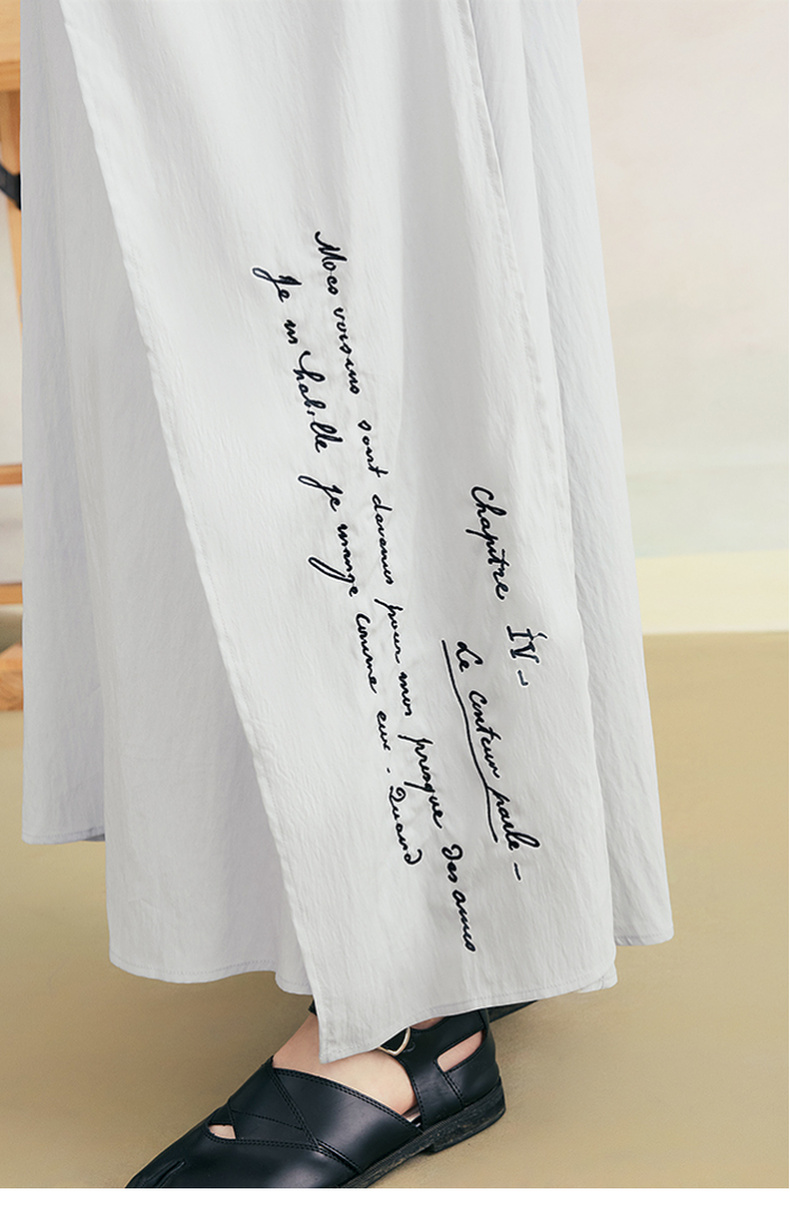 Chapitre IV -
Le conteur parle -
Mes voisins sont devenus pour moi presque des amis
Je m'habille je mange comme eux. Quand